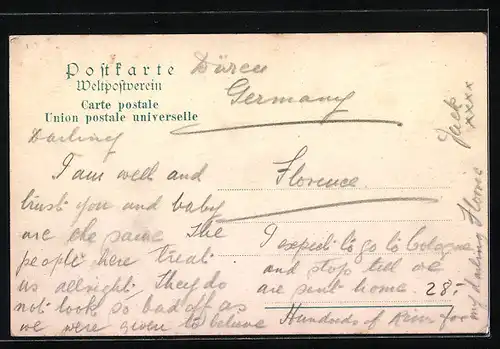 Postkarte
Weltpostverein
Carte postale
Union postale universelle
Düren
Germany
Darling
I am well and
trust you and baby
are the same The
people here treat
us allright, they do
not look so bad off as
we were given to believe
Florence
I expect to go to Cologne
and stop till we
are sent home. 28.-
Hundreds of kisses for
my darling Florrie
Jack
xxxx